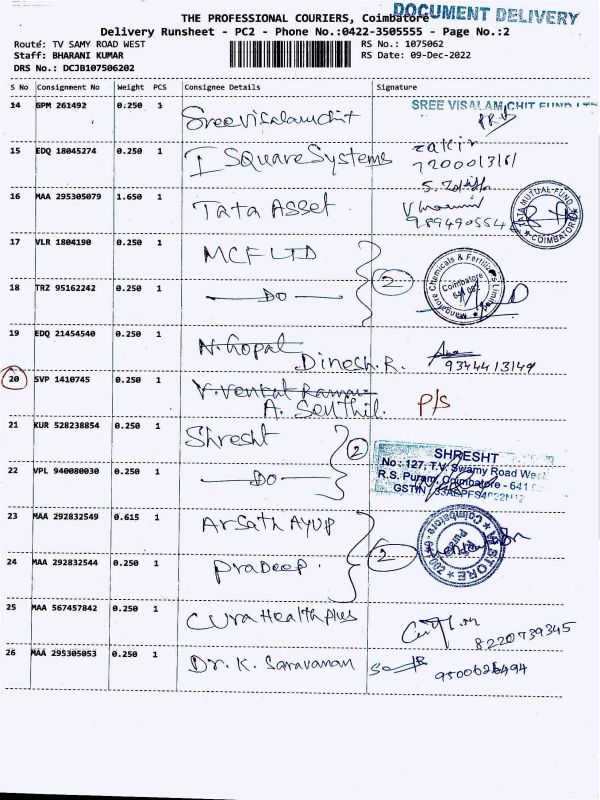 DOCUMENT DELIVERY
THE PROFESSIONAL COURIERS, Coimbatore
Delivery Runsheet - PC2 - Phone No.:0422-3505555 - Page No.:2
Route: TV SAMY ROAD WEST RS No.: 1075062
Staff: BHARANI KUMAR RS Date: 09-Dec-2022
DRS No.: DCJB107506202
S No Consignment No Weight PCS Consignee Details Signature
14 GPM 261492 0.250 1 Sree Visalam chit SREE VISALAM CHIT FUND LTD
15 EDQ 18045274 0.250 1 I Square Systems zakir
16 MAA 295305079 1.650 1 Tata Asset TATA MUTUAL FUND COIMBATORE
17 VLR 1804190 0.250 1 MCF LTD
18 TRZ 95162242 0.250 1 Do 2 Mangalore Chemicals & Fertilizers Limited Coimbatore
19 EDQ 21454540 0.250 1 N. Gopal
Dinesh. R.
20 SVP 1410745 0.250 1 V. Venkat Raman
A. Senthil. P/S
21 KUR 528238854 0.250 1 Shresht 2 SHRESHT
No : 127, T.V. Swamy Road West
R.S. Puram, Coimbatore - 641
22 VPL 940080030 0.250 1 Do GSTIN
23 MAA 292832549 0.615 1 Arsath AYUP
24 MAA 292832544 0.250 1 Pradeep. 2 STORE
25 MAA 567457842 0.250 1 Cura Health plus 8220739345
26 MAA 295305053 0.250 1 Dr. K. Saravanan 9500626494